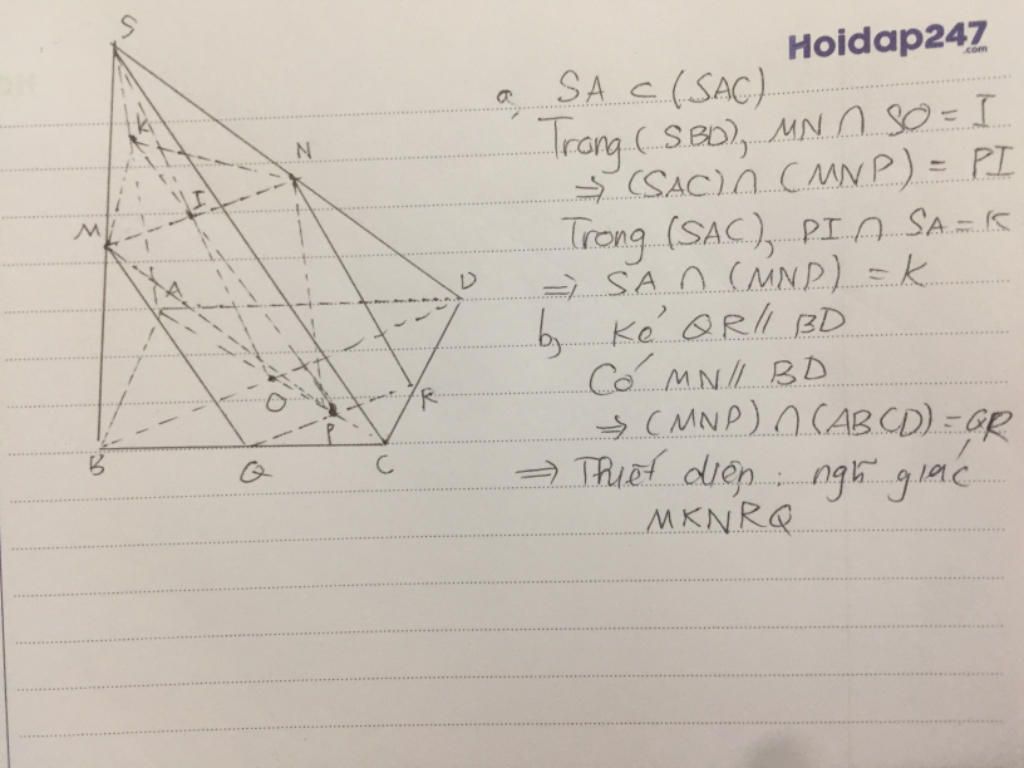 Hoidap247
.com
S
K
N
I
M
A
D
O
R
P
B
Q
C
a, SA ⊂ (SAC)
Trong (SBD), MN ∩ SO = I
⇒ (SAC) ∩ (MNP) = PI
Trong (SAC), PI ∩ SA = K
⇒ SA ∩ (MNP) = K
b, Kẻ QR // BD
Có MN // BD
⇒ (MNP) ∩ (ABCD) = QR
⇒ Thiết diện : ngũ giác
MKNRQ